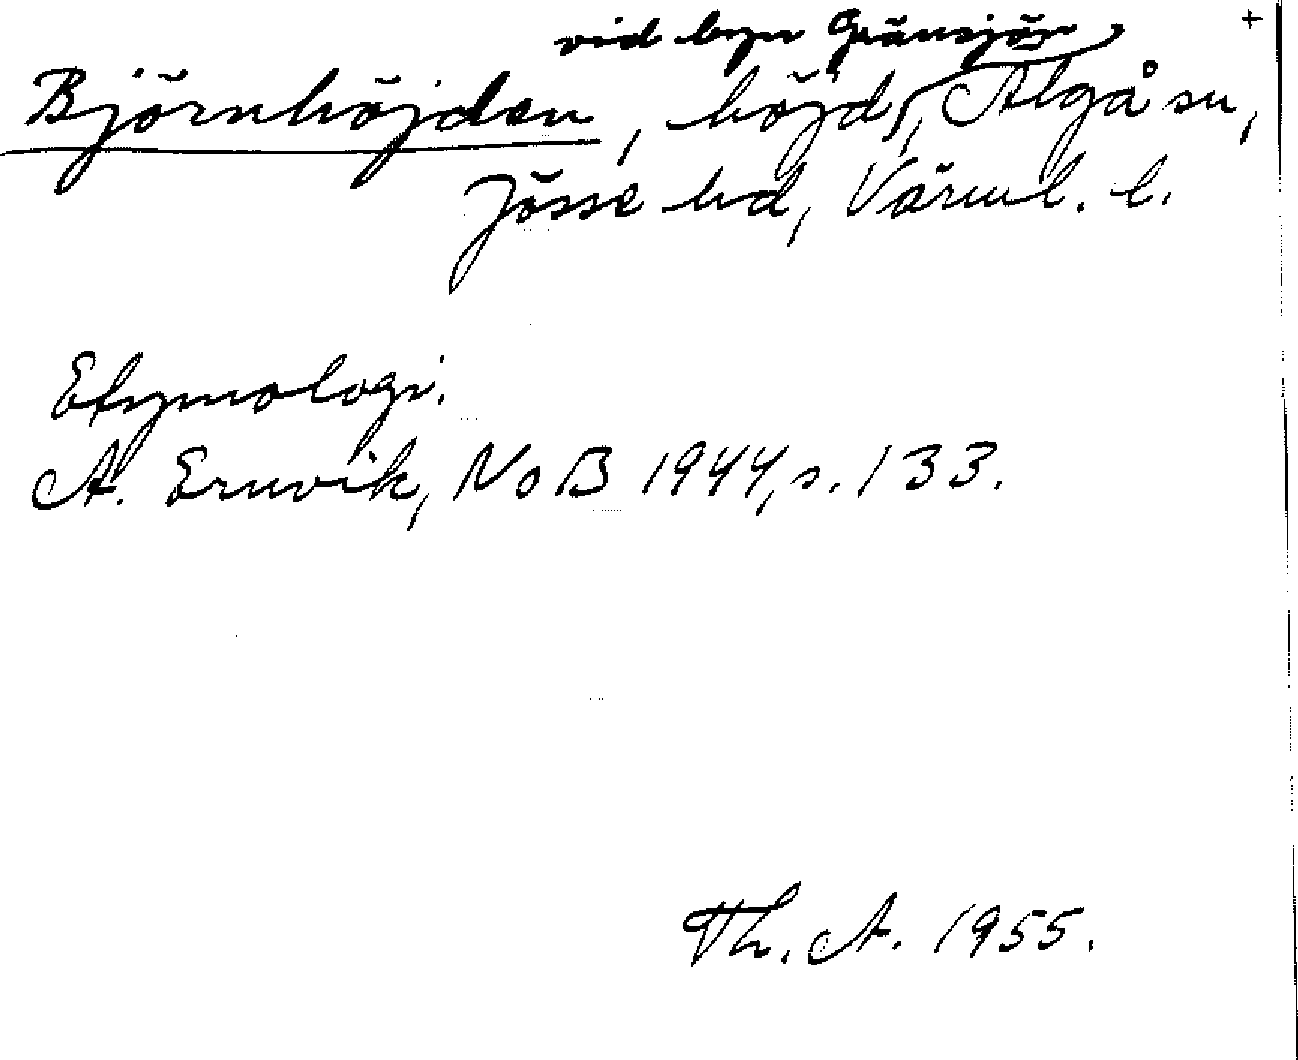 vid byn Gränsjön,
+
Björnhöjden, höjd, Älgå sn,
Jösse hd, Värml. l.
Etymologi.
A. Ernvik, NoB 1944, s. 133.
Th. A. 1955.